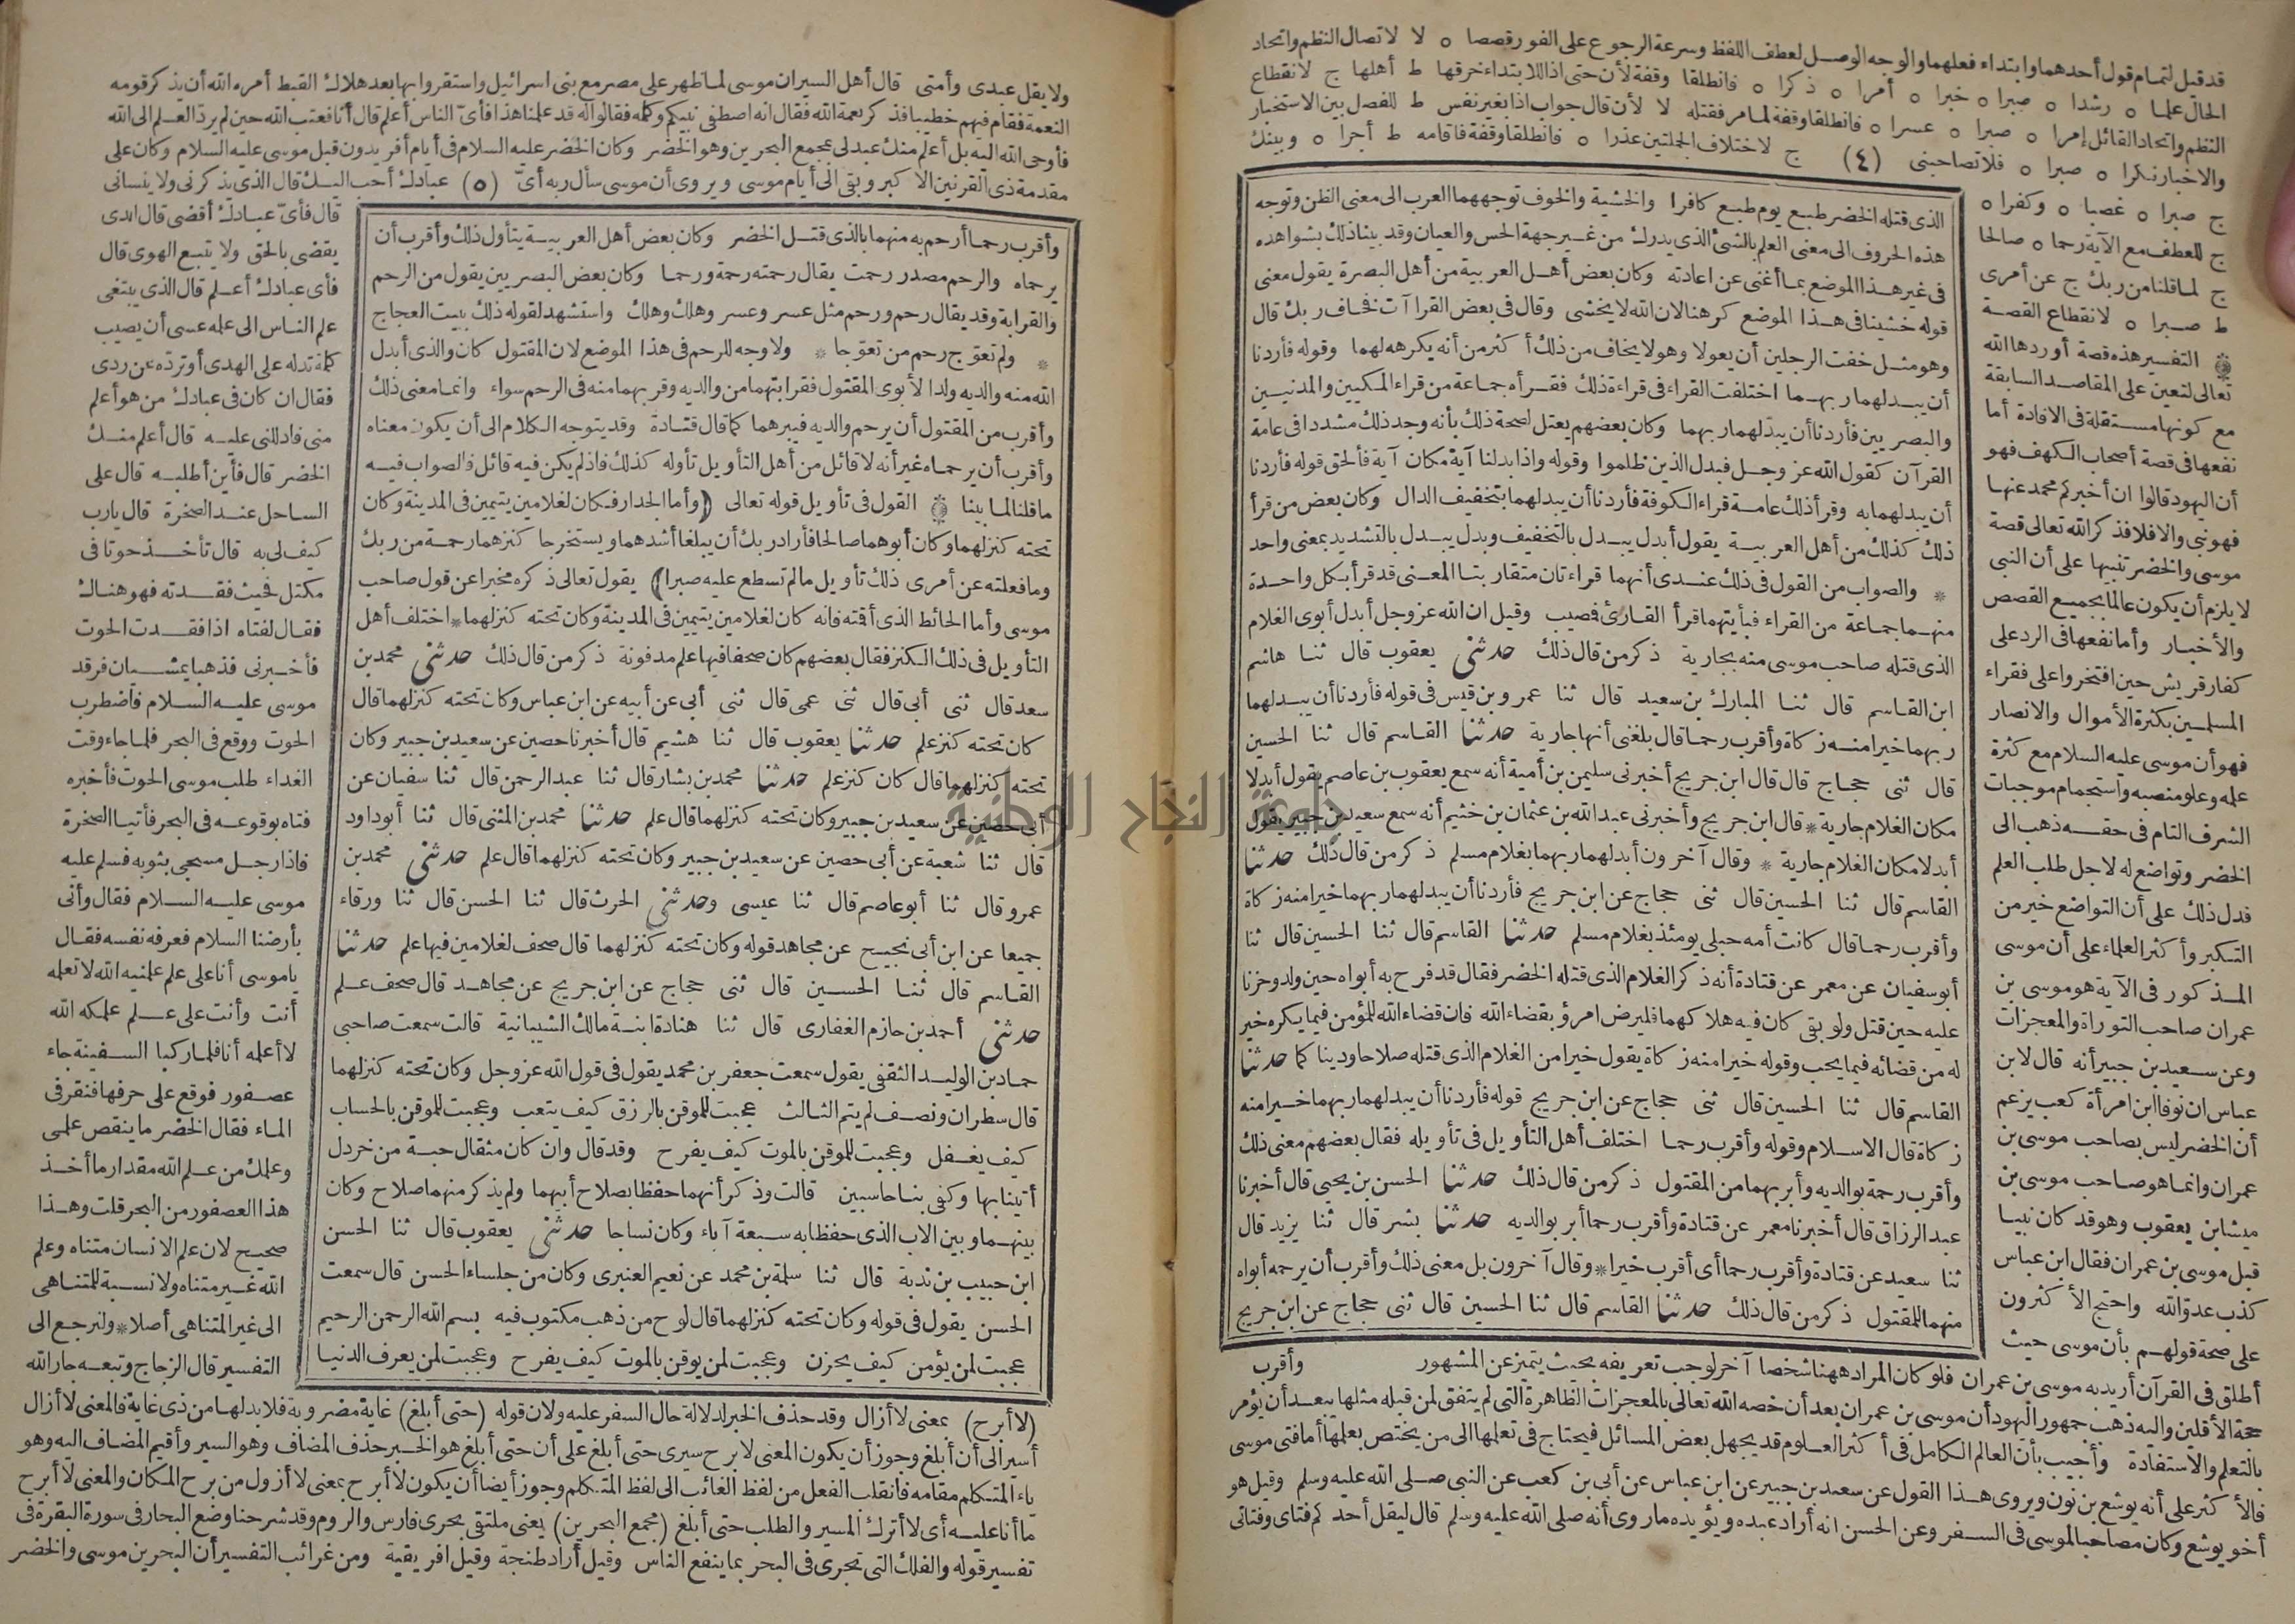 قد قيل لتمام قول أحدهما وابتداء فعلهما والوجه الوصل لعطف اللفظ وسرعة الرجوع على الفور قصصا ه لا لاتصال النظم واتحاد
الحال علما ه رشدا ه صبرا ه خبرا ه أمرا ه ذكرا ه فانطلقا وقفة لأن حتى اذا للابتداء خرقها ط أهلها ج لانقطاع
النظم واتحاد القائل إمرا ه صبرا ه عسرا ه فانطلقا وقفة لما مر فقتله لا لأن قال جواب اذا بغير نفس ط للفصل بين الاستخبار
والاخبار نكرا ه صبرا ه فلا تصاحبنى (٤) ج لاختلاف الجملتين عذرا ه فانطلقا وقفة فأقامه ط أجرا ه وبينك
ج صبرا ه غصبا ه وكفرا ه
ج للعطف مع الآية رحما ه صالحا
ج لما قلنا من ربك ج عن أمرى
ط صبرا ه لانقطاع القصة
التفسير هذه قصة أوردها الله
تعالى لتعين على المقاصد السابقة
مع كونها مستقلة فى الافادة أما
نفعها فى قصة أصحاب الكهف فهو
أن اليهود قالوا ان أخبركم محمد عنها
فهو نبى والا فلا فذكر الله تعالى قصة
موسى والخضر تنبيها على أن النبى
لا يلزم أن يكون عالما بجميع القصص
والأخبار وأما نفعها فى الرد على
كفار قريش حين افتخروا على فقراء
المسلمين بكثرة الأموال والانصار
فهو أن موسى عليه السلام مع كثرة
علمه وعلو منصبه واستجمام موجبات
الشرف التام فى حقه ذهب الى
الخضر وتواضع له لاجل طلب العلم
فدل ذلك على أن التواضع خير من
التكبر وأكثر العلماء على أن موسى
المذكور فى الآية هو موسى بن
عمران صاحب التوراة والمعجزات
وعن سعيد بن جبير أنه قال لابن
عباس ان نوفا ابن امرأة كعب يزعم
أن الخضر ليس بصاحب موسى بن
عمران وانما هو صاحب موسى بن
ميشا بن يعقوب وهو قد كان نبيا
قبل موسى بن عمران فقال ابن عباس
كذب عدو الله واحتج الأكثرون
على صحة قولهم بأن موسى حيث
أطلق فى القرآن أريد به موسى بن عمران فلو كان المراد ههنا شخصا آخر لوجب تعريفه بحيث يتميز عن المشهور
حجة الأقلين واليه ذهب جمهور اليهود أن موسى بن عمران بعد أن خصه الله تعالى بالمعجزات الظاهرة التى لم يتفق لمن قبله مثلها يبعد أن يؤمر
بالتعلم والاستفادة وأجيب بأن العالم الكامل فى أكثر العلوم قد يجهل بعض المسائل فيحتاج فى تعلمها الى من يختص بعلمها أما فتى موسى
فالأكثر على أنه يوشع بن نون ويروى هذا القول عن سعيد بن جبير عن ابن عباس عن أبى بن كعب عن النبى صلى الله عليه وسلم وقيل هو
أخو يوشع وكان مصاحبا لموسى فى السفر وعن الحسن انه أراد عبده ويؤيده ما روى أنه صلى الله عليه وسلم قال ليقل أحدكم فتاى وفتاتى
الذى قتله الخضر طبع يوم طبع كافرا والخشية والخوف توجههما العرب الى معنى الظن وتوجه
هذه الحروف الى معنى العلم بالشئ الذى يدرك من غير جهة الحس والعيان وقد بينا ذلك بشواهده
فى غير هذا الموضع بما أغنى عن اعادته وكان بعض أهل العربية من أهل البصرة يقول معنى
قوله خشينا فى هذا الموضع كرهنا لان الله لا يخشى وقال فى بعض القراآت فخاف ربك قال
وهو مثل خفت الرجلين أن يعولا وهو لا يخاف من ذلك أكثر من أنه يكرهه لهما وقوله فأردنا
أن يبدلهما ربهما اختلفت القراء فى قراءة ذلك فقرأه جماعة من قراء المكيين والمدنيين
والبصريين فأردنا أن يبدّلهما ربهما وكان بعضهم يعتل لصحة ذلك بأنه وجد ذلك مشددا فى عامة
القرآن كقول الله عز وجل فبدل الذين ظلموا وقوله واذا بدلنا آية مكان آية فألحق قوله فأردنا
أن يبدلهما به وقرأ ذلك عامة قراء الكوفة فأردنا أن يبدلهما بتخفيف الدال وكان بعض من قرأ
ذلك كذلك من أهل العربية يقول أبدل يبدل بالتخفيف وبدل يبدل بالتشديد بمعنى واحد
* والصواب من القول فى ذلك عندى أنهما قراءتان متقاربتا المعنى قد قرأ بكل واحدة
منهما جماعة من القراء فبأيتهما قرأ القارئ فمصيب وقيل ان الله عز وجل أبدل أبوى الغلام
الذى قتله صاحب موسى منه بجارية ذكر من قال ذلك حدثنى يعقوب قال ثنا هاشم
ابن القاسم قال ثنا المبارك بن سعيد قال ثنا عمرو بن قيس فى قوله فأردنا أن يبدلهما
ربهما خيرا منه زكاة وأقرب رحما قال بلغنى أنها جارية حدثنا القاسم قال ثنا الحسين
قال ثنى حجاج قال قال ابن جريج أخبرنى سليمن بن أمية أنه سمع يعقوب بن عاصم يقول أبدلا
مكان الغلام جارية * قال ابن جريج وأخبرنى عبد الله بن عثمان بن خثيم أنه سمع سعيد بن جبير يقول
أبدلا مكان الغلام جارية * وقال آخرون أبدلهما ربهما بغلام مسلم ذكر من قال ذلك حدثنا
القاسم قال ثنا الحسين قال ثنى حجاج عن ابن جريج فأردنا أن يبدلهما ربهما خيرا منه زكاة
وأقرب رحما قال كانت أمه حبلى يومئذ بغلام مسلم حدثنا القاسم قال ثنا الحسين قال ثنا
أبو سفيان عن معمر عن قتادة أنه ذكر الغلام الذى قتله الخضر فقال قد فرح به أبواه حين ولد وحزنا
عليه حين قتل ولو بقى كان فيه هلاكهما فليرض امرؤ بقضاء الله فان قضاء الله للمؤمن فيما يكره خير
له من قضائه فيما يحب وقوله خيرا منه زكاة يقول خيرا من الغلام الذى قتله صلاحا ودينا كما حدثنا
القاسم قال ثنا الحسين قال ثنى حجاج عن ابن جريج قوله فأردنا أن يبدلهما ربهما خيرا منه
زكاة قال الاسلام وقوله وأقرب رحما اختلف أهل التأويل فى تأويله فقال بعضهم معنى ذلك
وأقرب رحمة بوالديه وأبر بهما من المقتول ذكر من قال ذلك حدثنا الحسن بن يحيى قال أخبرنا
عبد الرزاق قال أخبرنا معمر عن قتادة وأقرب رحما أبر بوالديه حدثنا بشر قال ثنا يزيد قال
ثنا سعيد عن قتادة وأقرب رحما أى أقرب خيرا * وقال آخرون بل معنى ذلك وأقرب أن يرحمه أبواه
منهما للمقتول ذكر من قال ذلك حدثنا القاسم قال ثنا الحسين قال ثنى حجاج عن ابن جريج
وأقرب
ولا يقل عبدى وأمتى قال أهل السير ان موسى لما ظهر على مصر مع بنى اسرائيل واستقروا بها بعد هلاك القبط أمره الله أن يذكر قومه
النعمة فقام فيهم خطيبا فذكر نعمة الله فقال انه اصطفى نبيكم وكلمه فقالوا له قد علمنا هذا فأىّ الناس أعلم قال أنا فعتب الله حين لم يرد العلم الى الله
فأوحى الله اليه بل أعلم منك عبد لى بمجمع البحرين وهو الخضر وكان الخضر عليه السلام فى أيام أفريدون قبل موسى عليه السلام وكان على
مقدمة ذى القرنين الاكبر وبقى الى أيام موسى ويروى أن موسى سأل ربه أىّ (٥) عبادك أحب اليك قال الذى يذكرنى ولا ينسانى
قال فأىّ عبادك أقضى قال الذى
يقضى بالحق ولا يتبع الهوى قال
فأى عبادك أعلم قال الذى يبتغى
علم الناس الى علمه عسى أن يصيب
كلمة تدله على الهدى أو ترده عن ردى
فقال ان كان فى عبادك من هو أعلم
منى فادللنى عليه قال أعلم منك
الخضر قال فأين أطلبه قال على
الساحل عند الصخرة قال يا رب
كيف لى به قال تأخذ حوتا فى
مكتل فحيث فقدته فهو هناك
فقال لفتاه اذا فقدت الحوت
فأخبرنى فذهبا يمشيان فرقد
موسى عليه السلام فاضطرب
الحوت ووقع فى البحر فلما جاء وقت
الغداء طلب موسى الحوت فأخبره
فتاه بوقوعه فى البحر فأتيا الصخرة
فاذا رجل مسجى بثوبه فسلم عليه
موسى عليه السلام فقال وأنى
بأرضنا السلام فعرفه نفسه فقال
يا موسى أنا على علم علمنيه الله لا تعلمه
أنت وأنت على علم علمكه الله
لا أعلمه أنا فلما ركبا السفينة جاء
عصفور فوقع على حرفها فنقر فى
الماء فقال الخضر ما ينقص علمى
وعلمك من علم الله مقدار ما أخذ
هذا العصفور من البحر قلت وهذا
صحيح لان علم الانسان متناه وعلم
الله غير متناه ولا نسبة للمتناهى
الى غير المتناهى أصلا * ولنرجع الى
التفسير قال الزجاج وتبعه جار الله
(لا أبرح) بمعنى لا أزال وقد حذف الخبر لدلالة حال السفر عليه ولان قوله (حتى أبلغ) غاية مضروبة فلا بد لها من ذى غاية فالمعنى لا أزال
أسير الى أن أبلغ وجوز أن يكون المعنى لا يبرح سيرى حتى أبلغ على أن حتى أبلغ هو الخبر حذف المضاف وهو السير وأقيم المضاف اليه وهو
ياء المتكلم مقامه فانقلب الفعل من لفظ الغائب الى لفظ المتكلم وجوز أيضا أن يكون لا أبرح بمعنى لا أزول من برح المكان والمعنى لا أبرح
ما أنا عليه أى لا أترك المسير والطلب حتى أبلغ (مجمع البحرين) يعنى ملتقى بحرى فارس والروم وقد شرحنا وضع البحار فى سورة البقرة فى
تفسير قوله والفلك التى تجرى فى البحر بما ينفع الناس وقيل أراد طنجة وقيل افريقية ومن غرائب التفسير أن البحرين موسى والخضر
وأقرب رحما أرحم به منهما بالذى قتل الخضر وكان بعض أهل العربية يتأول ذلك وأقرب أن
يرحماه والرحم مصدر رحمت يقال رحمته رحمة ورحما وكان بعض البصريين يقول من الرحم
والقرابة وقد يقال رحم ورحم مثل عسر وعسر وهلك وهلك واستشهد لقوله ذلك ببيت العجاج
* ولم تعوّج رحم من تعوّجا * ولا وجه للرحم فى هذا الموضع لان المقتول كان والذى أبدل
الله منه والديه ولدا لأبوى المقتول فقرابتهما من والديه وقربهما منه فى الرحم سواء وانما معنى ذلك
وأقرب من المقتول أن يرحم والديه فيبرهما كما قال قتادة وقد يتوجه الكلام الى أن يكون معناه
وأقرب أن يرحماه غير أنه لا قائل من أهل التأويل تأوله كذلك فاذ لم يكن فيه قائل فالصواب فيه
ما قلنا لما بينا القول فى تأويل قوله تعالى (وأما الجدار فكان لغلامين يتيمين فى المدينة وكان
تحته كنز لهما وكان أبوهما صالحا فأراد ربك أن يبلغا أشدهما ويستخرجا كنزهما رحمة من ربك
وما فعلته عن أمرى ذلك تأويل ما لم تسطع عليه صبرا) يقول تعالى ذكره مخبرا عن قول صاحب
موسى وأما الحائط الذى أقمته فانه كان لغلامين يتيمين فى المدينة وكان تحته كنز لهما * اختلف أهل
التأويل فى ذلك الكنز فقال بعضهم كان صحفا فيها علم مدفونة ذكر من قال ذلك حدثنى محمد بن
سعد قال ثنى أبى قال ثنى عمى قال ثنى أبى عن أبيه عن ابن عباس وكان تحته كنز لهما قال
كان تحته كنز علم حدثنا يعقوب قال ثنا هشيم قال أخبرنا حصين عن سعيد بن جبير وكان
تحته كنز لهما قال كان كنز علم حدثنا محمد بن بشار قال ثنا عبد الرحمن قال ثنا سفيان عن
أبى حصين عن سعيد بن جبير وكان تحته كنز لهما قال علم حدثنا محمد بن المثنى قال ثنا أبو داود
قال ثنا شعبة عن أبى حصين عن سعيد بن جبير وكان تحته كنز لهما قال علم حدثنى محمد بن
عمرو قال ثنا أبو عاصم قال ثنا عيسى وحدثنى الحرث قال ثنا الحسن قال ثنا ورقاء
جميعا عن ابن أبى نجيح عن مجاهد قوله وكان تحته كنز لهما قال صحف لغلامين فيها علم حدثنا
القاسم قال ثنا الحسين قال ثنى حجاج عن ابن جريج عن مجاهد قال صحف علم
حدثنى أحمد بن حازم الغفارى قال ثنا هنادة ابنة مالك الشيبانية قالت سمعت صاحبى
حماد بن الوليد الثقفى يقول سمعت جعفر بن محمد يقول فى قول الله عز وجل وكان تحته كنز لهما
قال سطران ونصف لم يتم الثالث عجبت للموقن بالرزق كيف يتعب وعجبت للموقن بالحساب
كيف يغفل وعجبت للموقن بالموت كيف يفرح وقد قال وان كان مثقال حبة من خردل
أتينا بها وكفى بنا حاسبين قالت وذكر أنهما حفظا بصلاح أبيهما ولم يذكر منهما صلاح وكان
بينهما وبين الاب الذى حفظا به سبعة آباء وكان نساجا حدثنى يعقوب قال ثنا الحسن
ابن حبيب بن ندبة قال ثنا سلمة بن محمد عن نعيم العنبرى وكان من جلساء الحسن قال سمعت
الحسن يقول فى قوله وكان تحته كنز لهما قال لوح من ذهب مكتوب فيه بسم الله الرحمن الرحيم
عجبت لمن يؤمن كيف يحزن وعجبت لمن يوقن بالموت كيف يفرح وعجبت لمن يعرف الدنيا
جامعة النجاح الوطنية